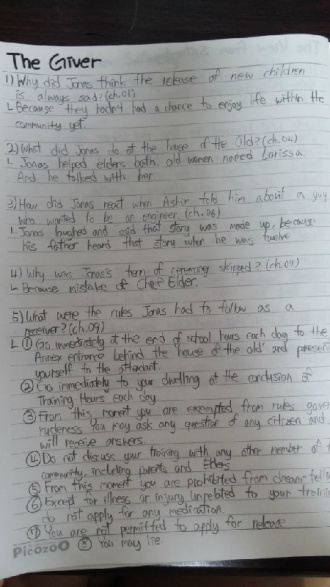 The Giver
1) Why did Jonas think the release of new children
is always sad? (ch.01)
L Because they hadn't had a chance to enjoy life within the
community yet.
2) What did Jonas do at the House of the Old? (ch.04)
L Jonas helped elders bath, old women named Larissa.
And he talked with her
3) How did Jonas react when Asher told him about a guy
who wanted to be an engineer. (ch.06)
L Jonas laughed and said that story was made up, because
his father heard that story when he was twelve
4) Why was Jonas's turn of ceremony skipped? (ch.07)
L Because mistake of Chief Elder.
5) What were the rules Jonas had to follow as a
receiver? (ch.09)
L ① Go immediately at the end of school hours each day to the
Annex entrance behind the house of the old and present
yourself to the attendant.
② Go immediately to your dwelling at the conclusion of
Training Hours each day
③ From this moment you are exempted from rules
rudeness You may ask any question of any citizen and
will receive answers.
④ Do not discuss your training with any other member of
community, including parents and Elders
⑤ From this moment you are prohibited from dream
⑥ Except for illness or injury unrelated to your
do not apply for any medication.
⑦ You are not permitted to apply for release
⑧ You may lie
Picozoo